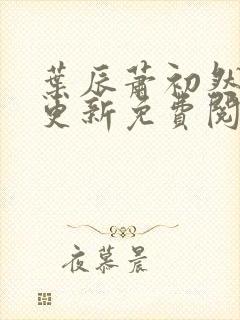 葉辰蕭初然
更新免費閱
夜慕晨